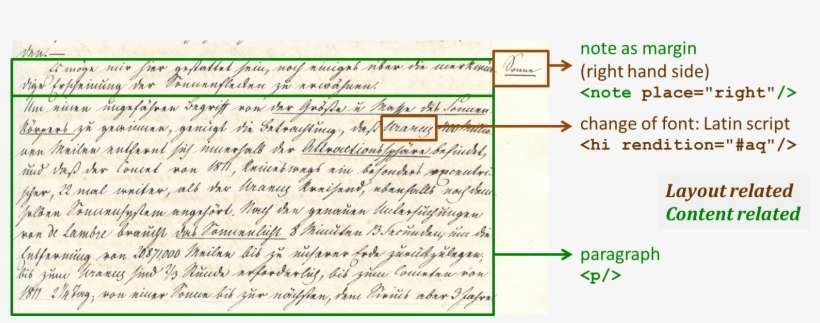 den.—
Es möge mir hier gestattet sein, noch einiges über die merkwür-
dige Erscheinung der Sonnenflecken zu erwähnen.
Sonne
Um einen ungefähren Begriff von der Größe u Masse des Sonnen
körpers zu gewinnen, genügt die Betrachtung, daß Uranus Millio
nen Meilen entfernt sich innerhalb der Attractionssphäre befindet,
und daß der Comet von 1811, keineswegs ein besonders excentri
scher, 22 mal weiter, als der Uranus kreisend, ebenfalls noch dem
selben Sonnensystem angehört. Nach den genauen Untersuchungen
von de Lambre braucht das Sonnenlicht 8 Minuten 13 Secunden, um die
Entfernung von Meilen bis zu unserer Erde zurückzulegen.
bis zum Uranus sind Stunde erforderlich, bis zum Cometen von
1811 Tag, von einer Sonne bis zur nächsten, dem Sirius aber 3 Jahre
note as margin
(right hand side)
<note place="right"/>
change of font: Latin script
<hi rendition="#aq"/>
Layout related
Content related
paragraph
<p/>